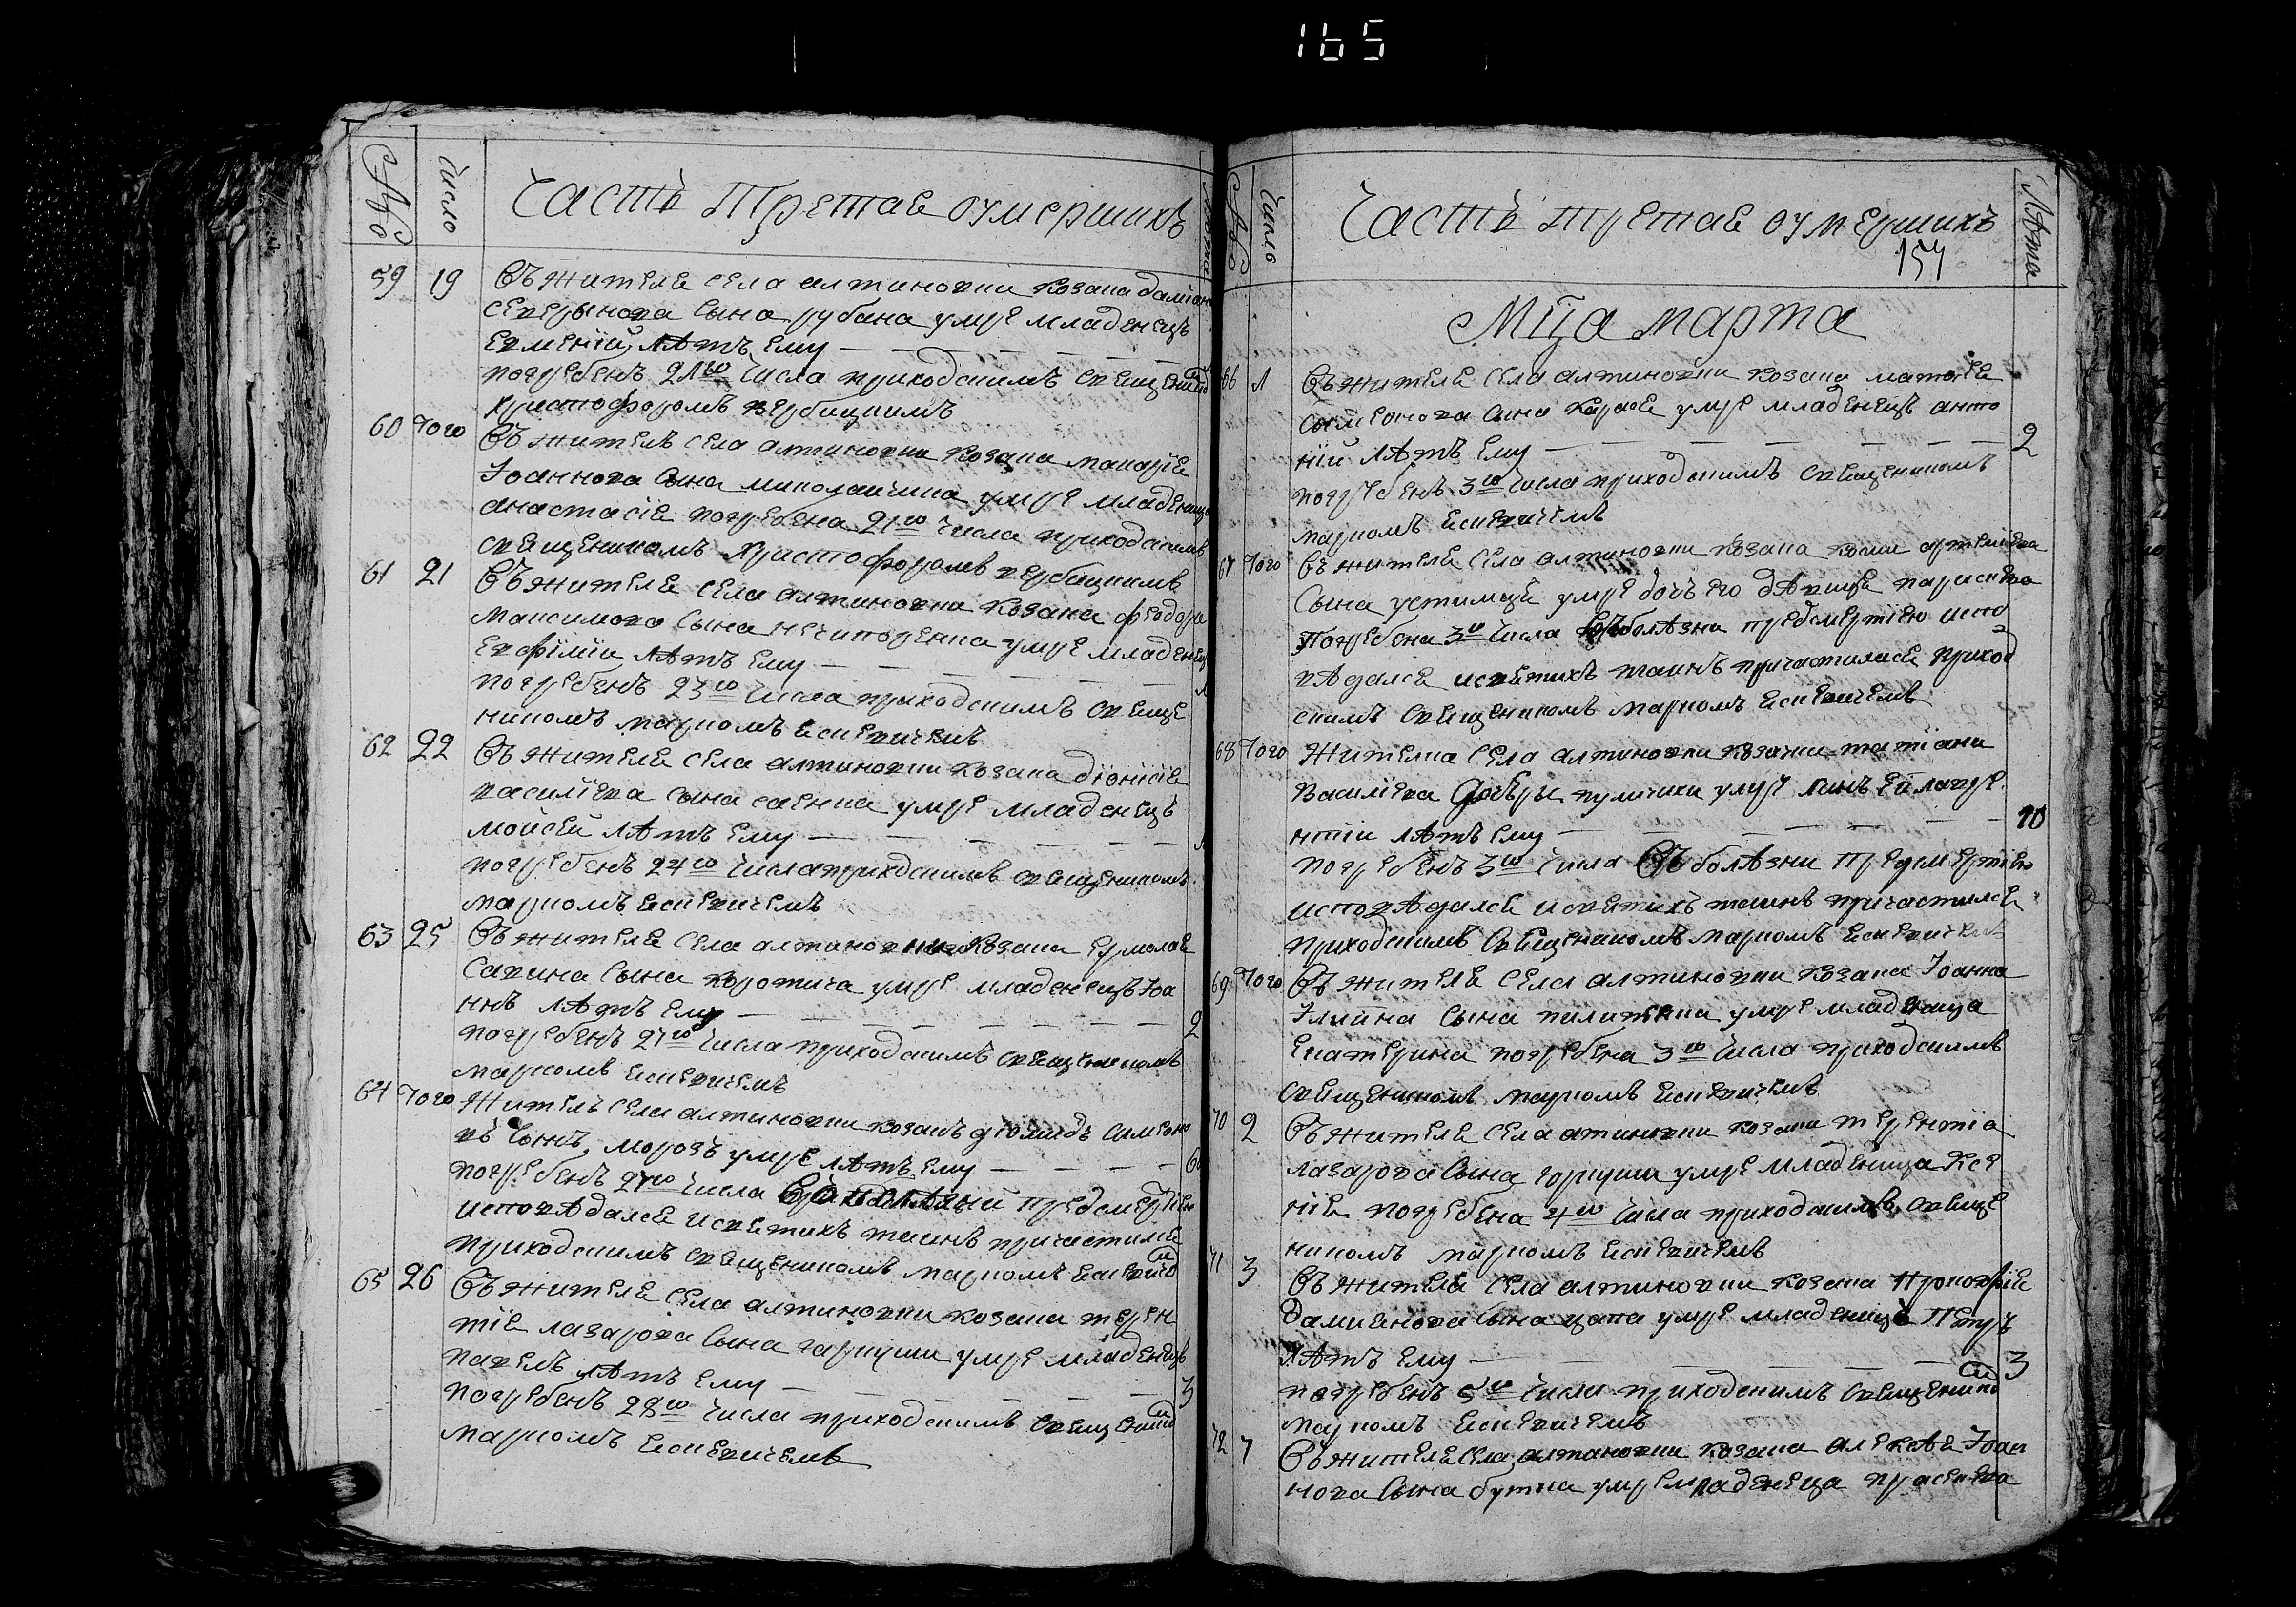 165
№ Число Часть Третая оумершихъ Лѣта
59 19 Въ жителя села алтиновки козака даміана
северынова сына рубана умре младенецъ
евменій, лѣтъ ему
погребенъ 21го числа приходскимъ священико
христофоромъ вербицкимъ
60 Того Въ жителя села алтиновки козака макарія
Іоаннова сына миколайчика умре младеница
анастасія погребена 21го числа приходскимъ
священикомъ христофоромъ вербицкимъ
61 21 Въ жителя села алтиновки козака феодора
максимова сына нечипоренка умре младенец
евфіміи лѣтъ ему
погребенъ 23го числа приходскимъ свяще
никомъ маркомъ есикевичемъ
62 22 Въ жителя села алтиновки козака діонісія
василіева сына саенка умре младенецъ
мойсей лѣтъ ему
погребенъ 24го числа приходскимъ священикомъ
маркомъ есикевичемъ
63 25 Въ жителя села алтиновки козака ермолая
савина сына коротича умре младенецъ Іоа
ннъ лѣтъ ему 2
погребенъ 27го числа приходскимъ священикомъ
маркомъ есикевичемъ
64 Того Житель села алтиновки козакъ діомидъ симено
въ сынъ морозъ умре лѣтъ ему 6
погребенъ 27го числа предсмертію
исповѣдался и святихъ таинъ причастился
приходскимъ священикомъ маркомъ есикевичо
65 26 Въ жителя села алтиновки козака терен
тія лазарова сына гаркуши умре младенецъ
павелъ лѣтъ ему 3
погребенъ 28го числа приходскимъ священико
маркомъ есикевичемъ
№ Число Часть третая оумершихъ Лѣта
154
Мца марта
66 1 Въ жителя села алтиновки козака матфея
сымеонова сына карася умре младенецъ анто
ній лѣтъ ему 2
погребенъ 3го числа приходскимъ священикомъ
маркомъ есикевичемъ
67 Того Въ жителя села алтиновки козака козми артеміева
сына устимця умре дочь его дѣвица параскева
погребена 3го числа болѣзна предсмертію испо
вѣдалася и святихъ таинъ причастилася приход
скимъ священикомъ маркомъ есикевичемъ
68 Того Жителка села алтиновки козачки татіани
василіева дочѣри кулички умре синъ ея лавре
нтіи лѣтъ ему 10
погребенъ 3го числа въ болѣзни предсмертію
исповѣдался и святихъ таинъ причастился
приходскимъ священикомъ маркомъ есикевичемъ
69 Того Въ жителя села алтиновки козака Іоанна
Іллина сына пилипенка умре младеница
екатерина погребена 3го числа приходскимъ
священикомъ маркомъ есикевичемъ
70 2 Въ жителя села алтиновки козака терентіа
лазарова сына гаркуши умре младеница ксе
нія погребена 4го числа приходскимъ свяще
никомъ маркомъ есикевичемъ
71 3 Въ жителя села алтиновки козака прокофія
даміанова сына цапа умре младенецъ петръ
лѣтъ ему 3
погребенъ 5го числа приходскимъ священико
маркомъ есикевичемъ
72 7 Въ жителя села алтиновки козака алексѣя Іоан
нова сына бутка умре младеница праскева